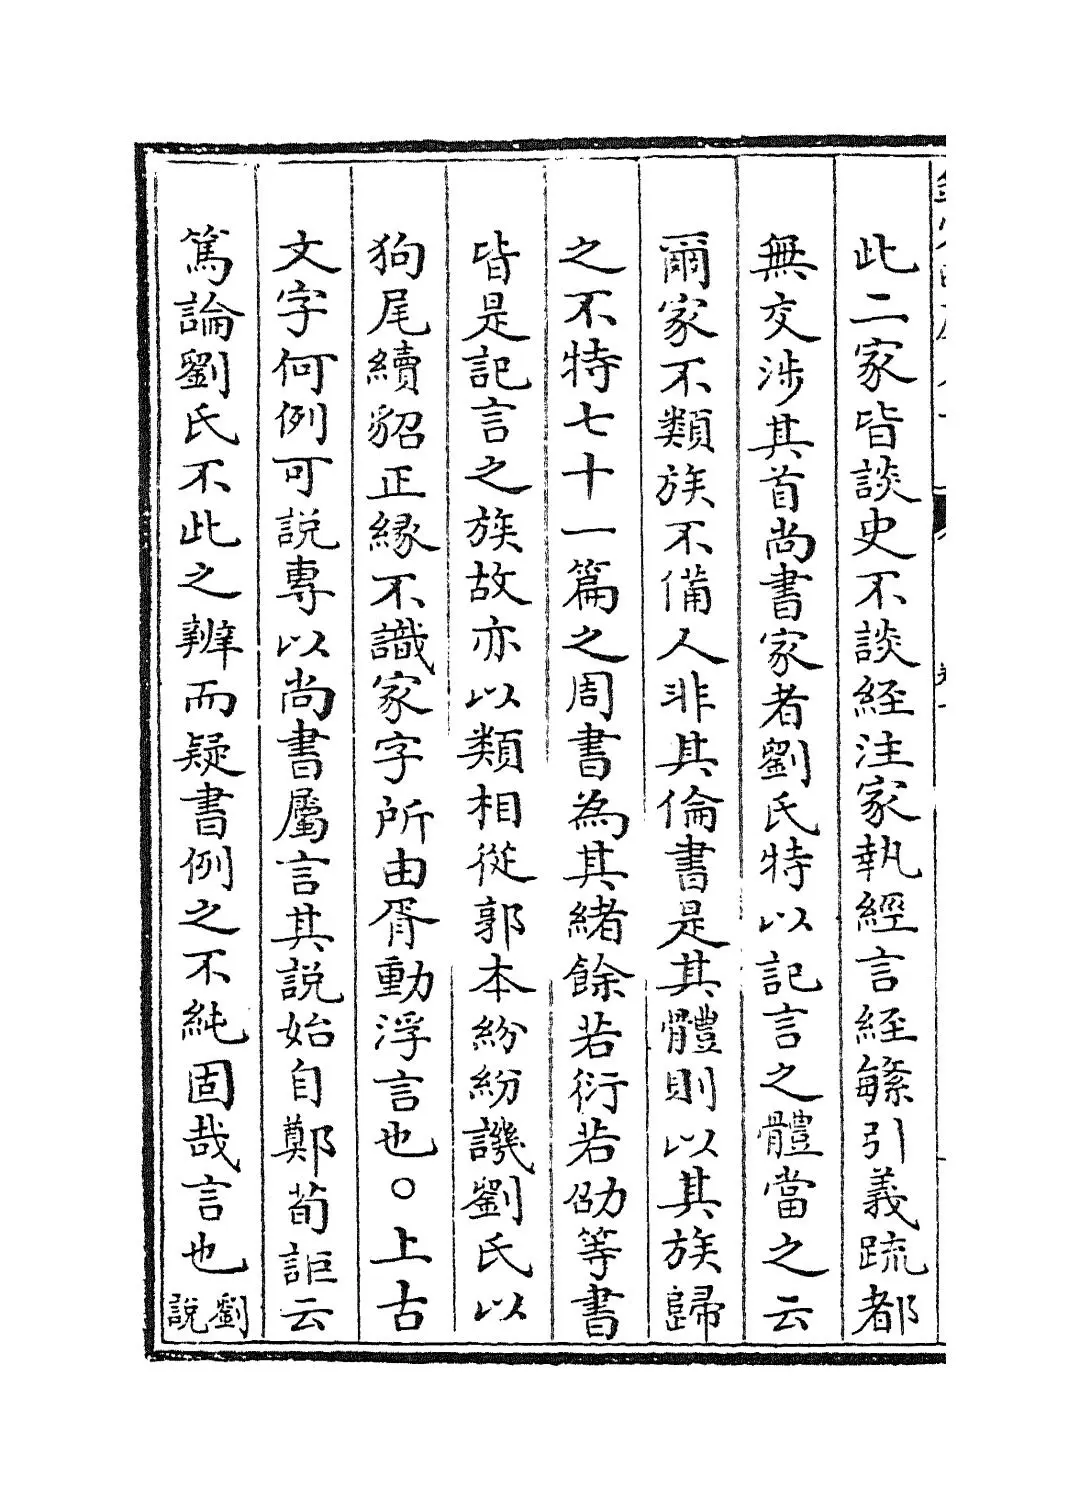 此二家皆談史不談経注家執經言経繁引義疏都
無交渉其首尚書家者劉氏特以記言之體當之云
爾家不類族不備人非其倫書是其體則以其族歸
之不特七十一篇之周書為其緒餘若衍若劭等書
皆是記言之族故亦以類相從郭本紛紛譏劉氏以
狗尾續貂正緣不識家字所由胥動浮言也○上古
文字何例可説專以尚書屬言其説始自鄭荀詎云
篤論劉氏不此之辨而疑書例之不純固哉言也劉
説